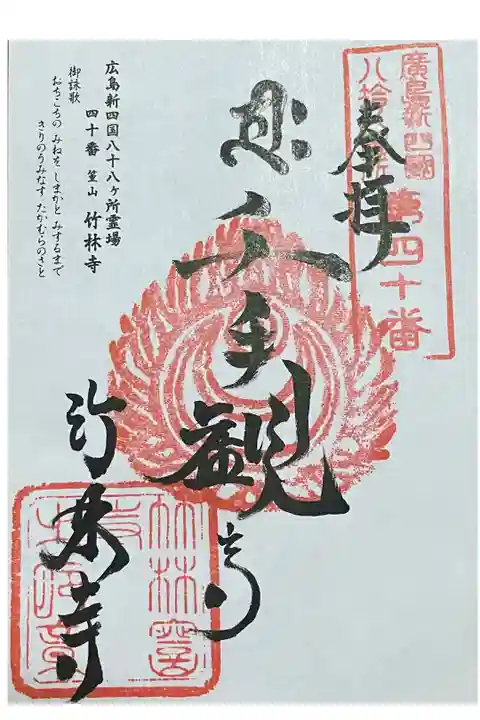 廣島新四國
八拾八ヶ所
第四十番
奉拝
千手観音
竹林寺
広島新四国八十八ヶ所霊場
四十番 篁山 竹林寺
御詠歌
おちこちの みねを しまかと みするまで
きりのうみなす たかむらのさと